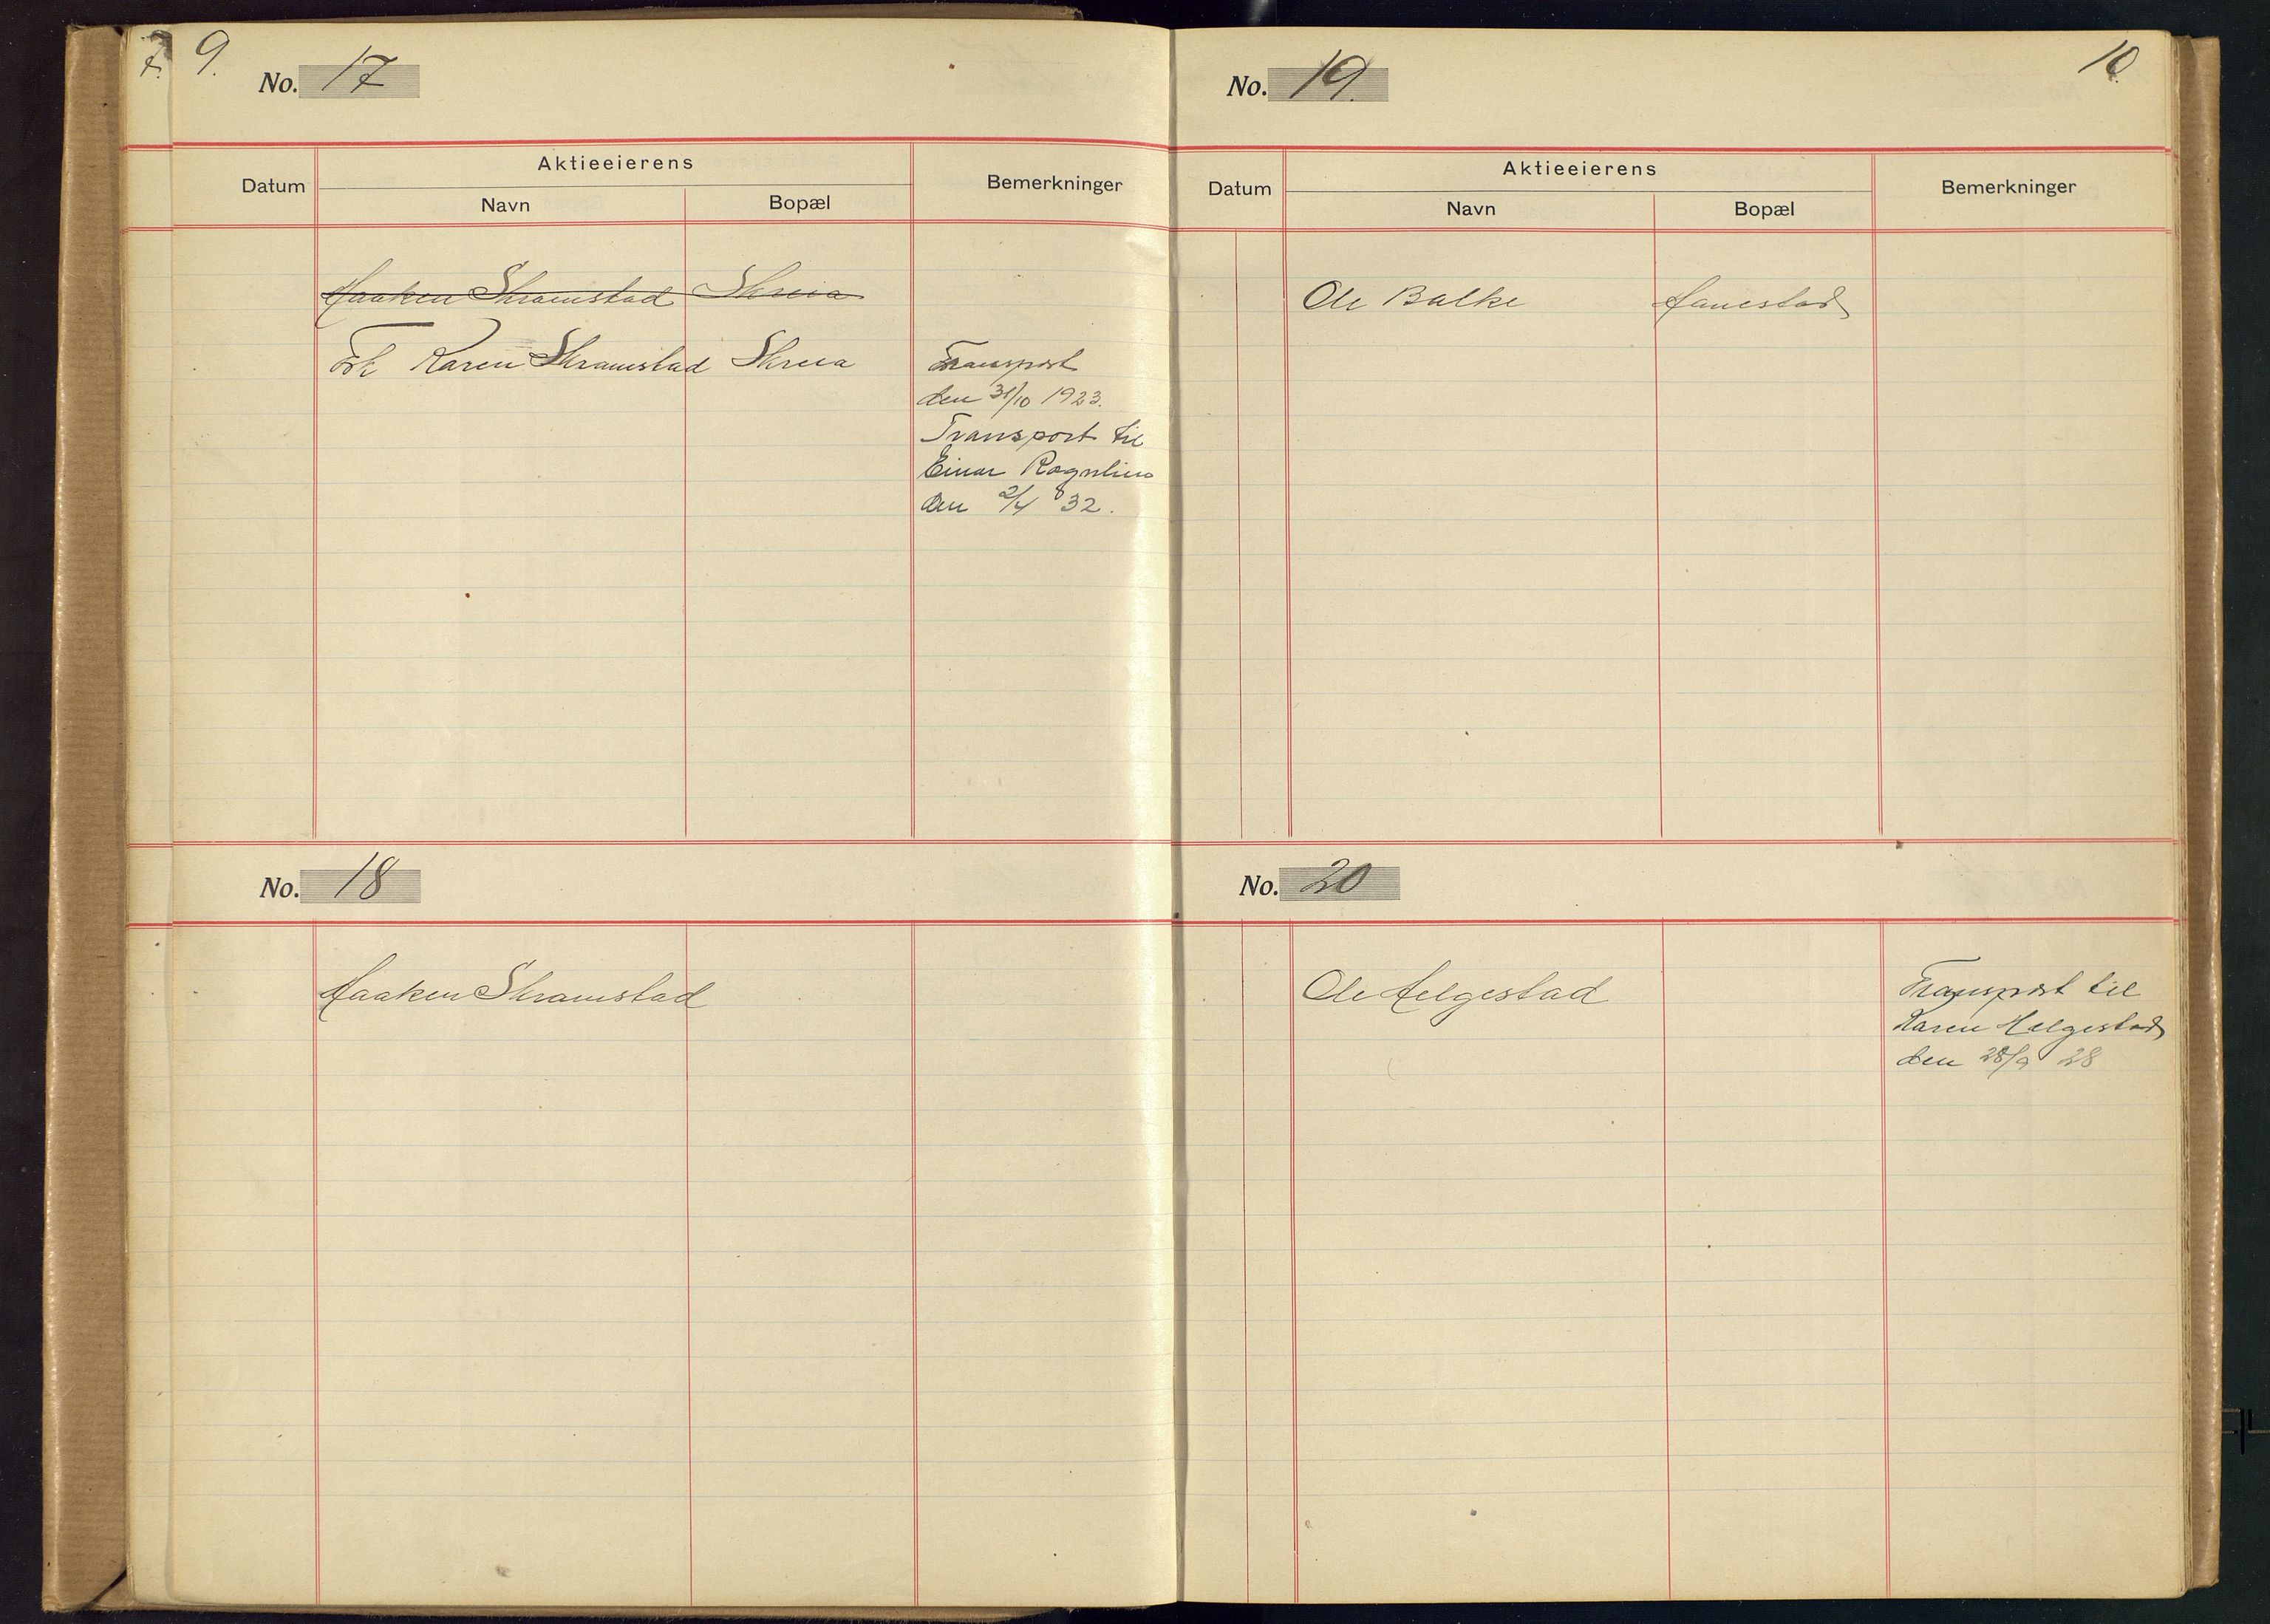 7.
9.
No. 17
Aktieeierens
Datum Navn Bopæl Bemerkninger
Haaken Skramstad Skreia
Frk Karen Skramstad Skreia Transport
den 31/10 1923.
Transport til
Einar Rognlien
den 2/4 32.
No. 18
Haaken Skramstad
10
No. 19.
Aktieeierens
Datum Navn Bopæl Bemerkninger
Ole Balke Hanestad
No. 20
Ole Helgestad Transport til
Karen Helgestad
den 28/9 28